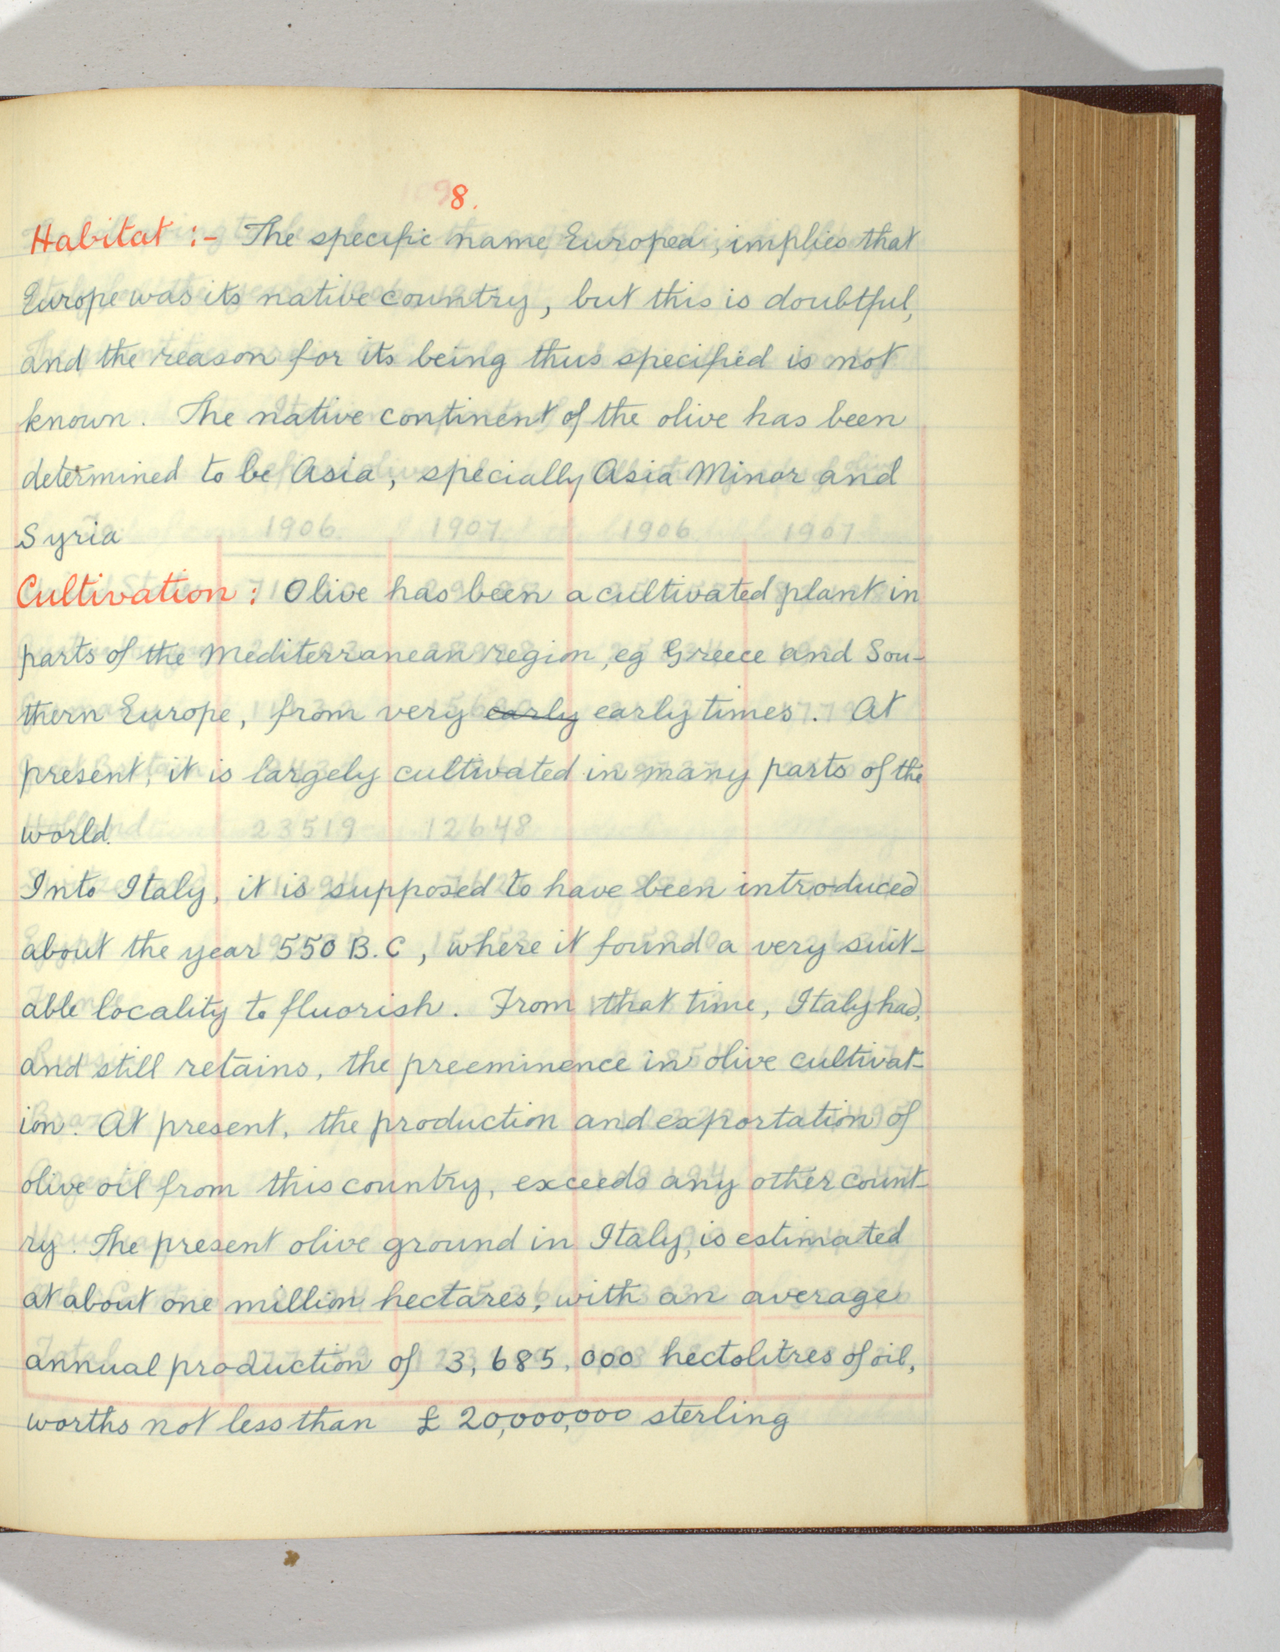 8.
Habitat :- The specific name Europea, implies that
Europe was its native country, but this is doubtful,
and the reason for its being thus specified is not
known. The native continent of the olive has been
determined to be Asia, specially Asia Minor and
Syria
Cultivation : Olive has been a cultivated plant in
parts of the Mediterranean region, eg Greece and Sou-
thern Europe, from very early early times. At
present, it is largely cultivated in many parts of the
world.
Into Italy, it is supposed to have been introduced
about the year 550 B.C, where it found a very suit-
able locality to fluorish. From that time, Italy had,
and still retains, the preeminence in olive cultivat-
ion. At present, the production and exportation of
olive oil from this country, exceeds any other count-
ry. The present olive ground in Italy, is estimated
at about one million hectares, with an average
annual production of 3,685,000 hectolitres of oil,
worths not less than £ 20,000,000 sterling